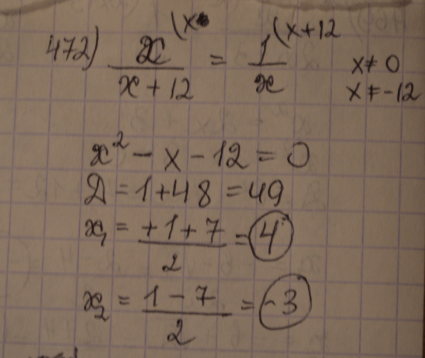 472) x (x / x + 12 = 1 (x+12 / x x ≠ 0
x ≠ -12
x² - x - 12 = 0
D = 1 + 48 = 49
x₁ = +1 + 7 / 2 = 4
x₂ = 1 - 7 / 2 = -3